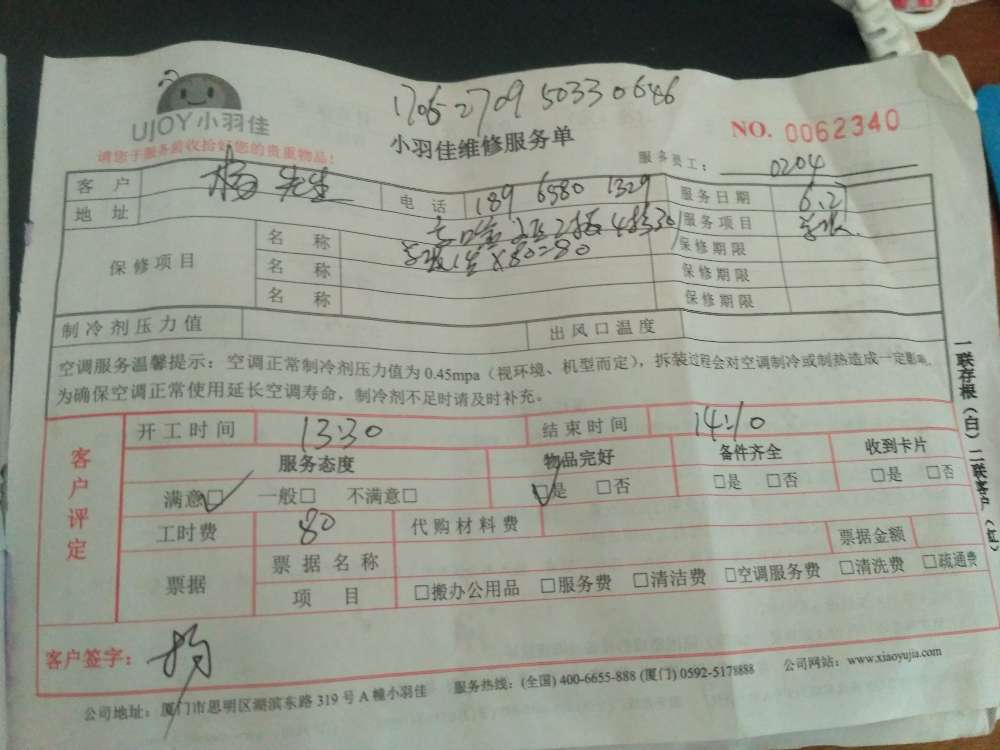 1706 2709 50330646
UJOY小羽佳
小羽佳维修服务单
NO. 0062340
请您于服务前收拾好您的贵重物品!
服务员工: 0204
客户 杨先生 电话 189 6580 1329 服务日期 6.27
地址 服务项目
保修项目 名称 保修期限
名称 ×80=80 保修期限
名称 保修期限
制冷剂压力值 出风口温度
空调服务温馨提示:空调正常制冷剂压力值为0.45mpa(视环境、机型而定),拆装过程会对空调制冷或制热造成一定影响,
为确保空调正常使用延长空调寿命,制冷剂不足时请及时补充。
客户评定
开工时间 13:30 结束时间 14:10
服务态度 物品完好 备件齐全 收到卡片
满意☑ 一般□ 不满意□ ☑是 □否 □是 □否 □是 □否
工时费 80 代购材料费
票据 票据名称 票据金额
项目 □搬办公用品 □服务费 □清洁费 □空调服务费 □清洗费 □疏通费
客户签字: 杨
公司地址:厦门市思明区湖滨东路319号A幢小羽佳 服务热线:(全国) 400-6655-888 (厦门) 0592-5178888 公司网站:www.xiaoyujia.com
一联存根(白)二联客户(红)